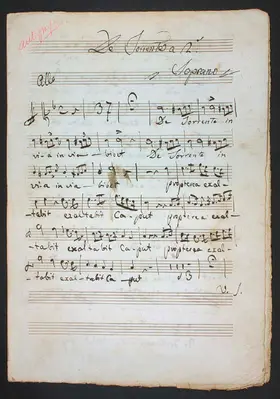 De Torrente a 12.
Soprano
Allo
37
De Torrente in
via in via - bibet De Torrente in
via in via - bibet propterea exal-
tabit exaltabit Caput propterea exal-
tabit exaltabit Caput propterea exal-
tabit exal-tabit Ca-put
V. S.